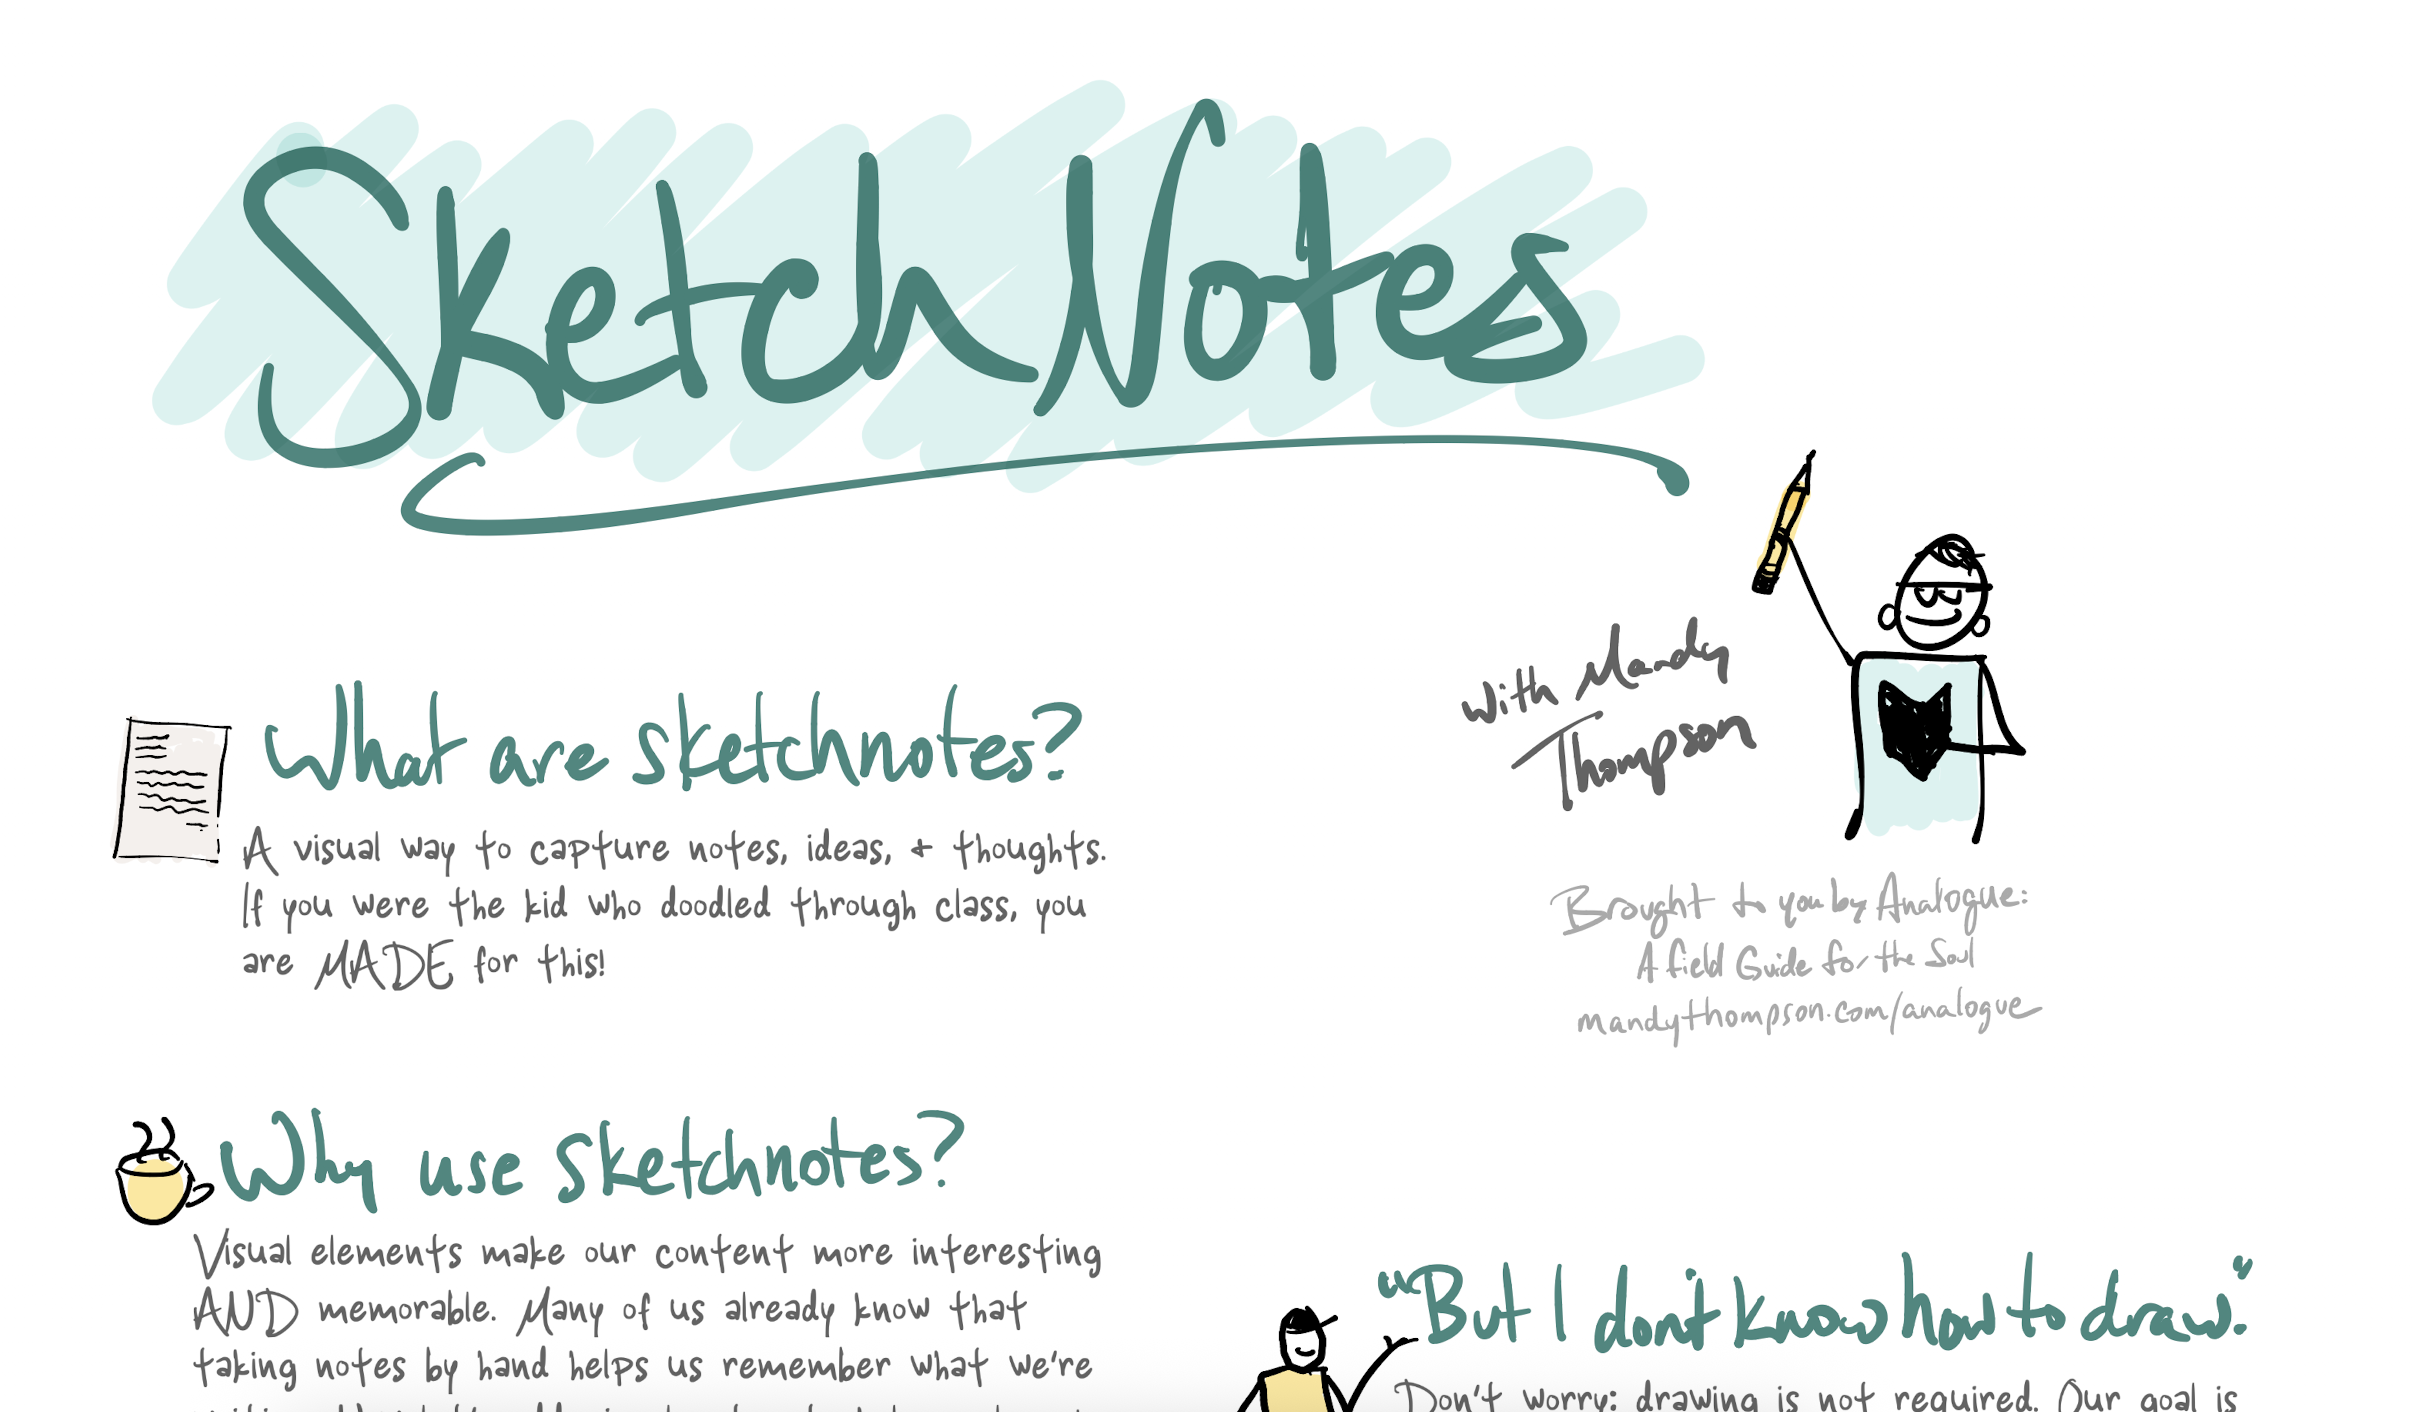 SketchNotes
with Mandy
Thompson
Brought to you by Analogue:
A field Guide for the Soul
mandythompson.com/analogue
What are sketchnotes?
A visual way to capture notes, ideas, + thoughts.
If you were the kid who doodled through class, you
are MADE for this!
Why use sketchnotes?
Visual elements make our content more interesting
AND memorable. Many of us already know that
taking notes by hand helps us remember what we're
"But I don't know how to draw."
Don't worry: drawing is not required. Our goal is